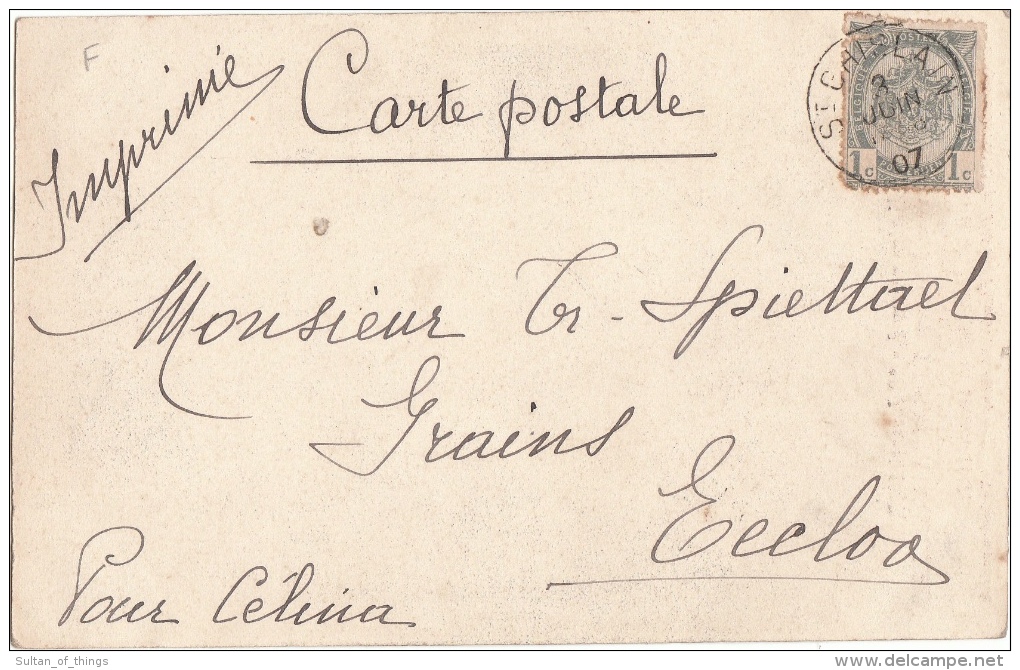 F
Imprimé
Carte postale
ST-GHISLAIN
3
JUIN
07
1c 1c
Monsieur Tr. Spiettael
Grains
Eecloo
Pour Célina
Sultan_of_things
delcampe.net